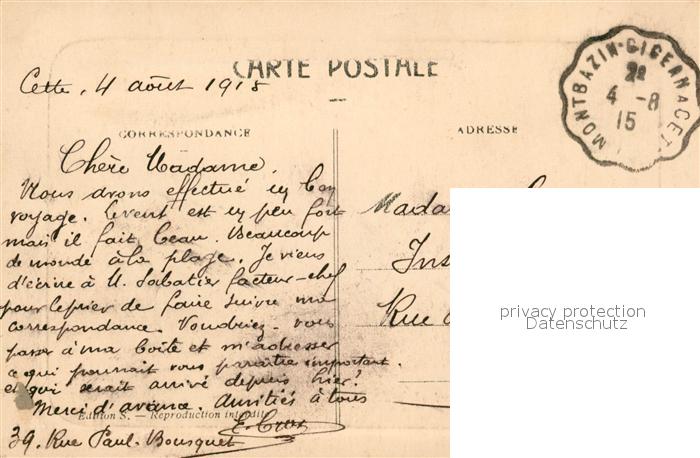 CARTE POSTALE
Cette, 4 août 1915
MONTBAZIN-GIGEAN A CETTE
2º
4 -8
15
CORRESPONDANCE
ADRESSE
Chère Madame.
Nous avons effectué un bon
voyage. Le vent est un peu fort
mais il fait beau. Beaucoup
de monde à la plage. Je viens
d'écrire à M. Sabatier facteur-chef
pour le prier de faire suivre ma
correspondance. Voudriez-vous
passer à ma boîte et m'adresser
ce qui pourrait vous paraître important.
et qui serait arrivé depuis hier?
Merci d'avance. Amitiés à tous
Edition S. - Reproduction interdite
39. Rue Paul-Bousquet
Mada
Ins
Rue
privacy protection
Datenschutz